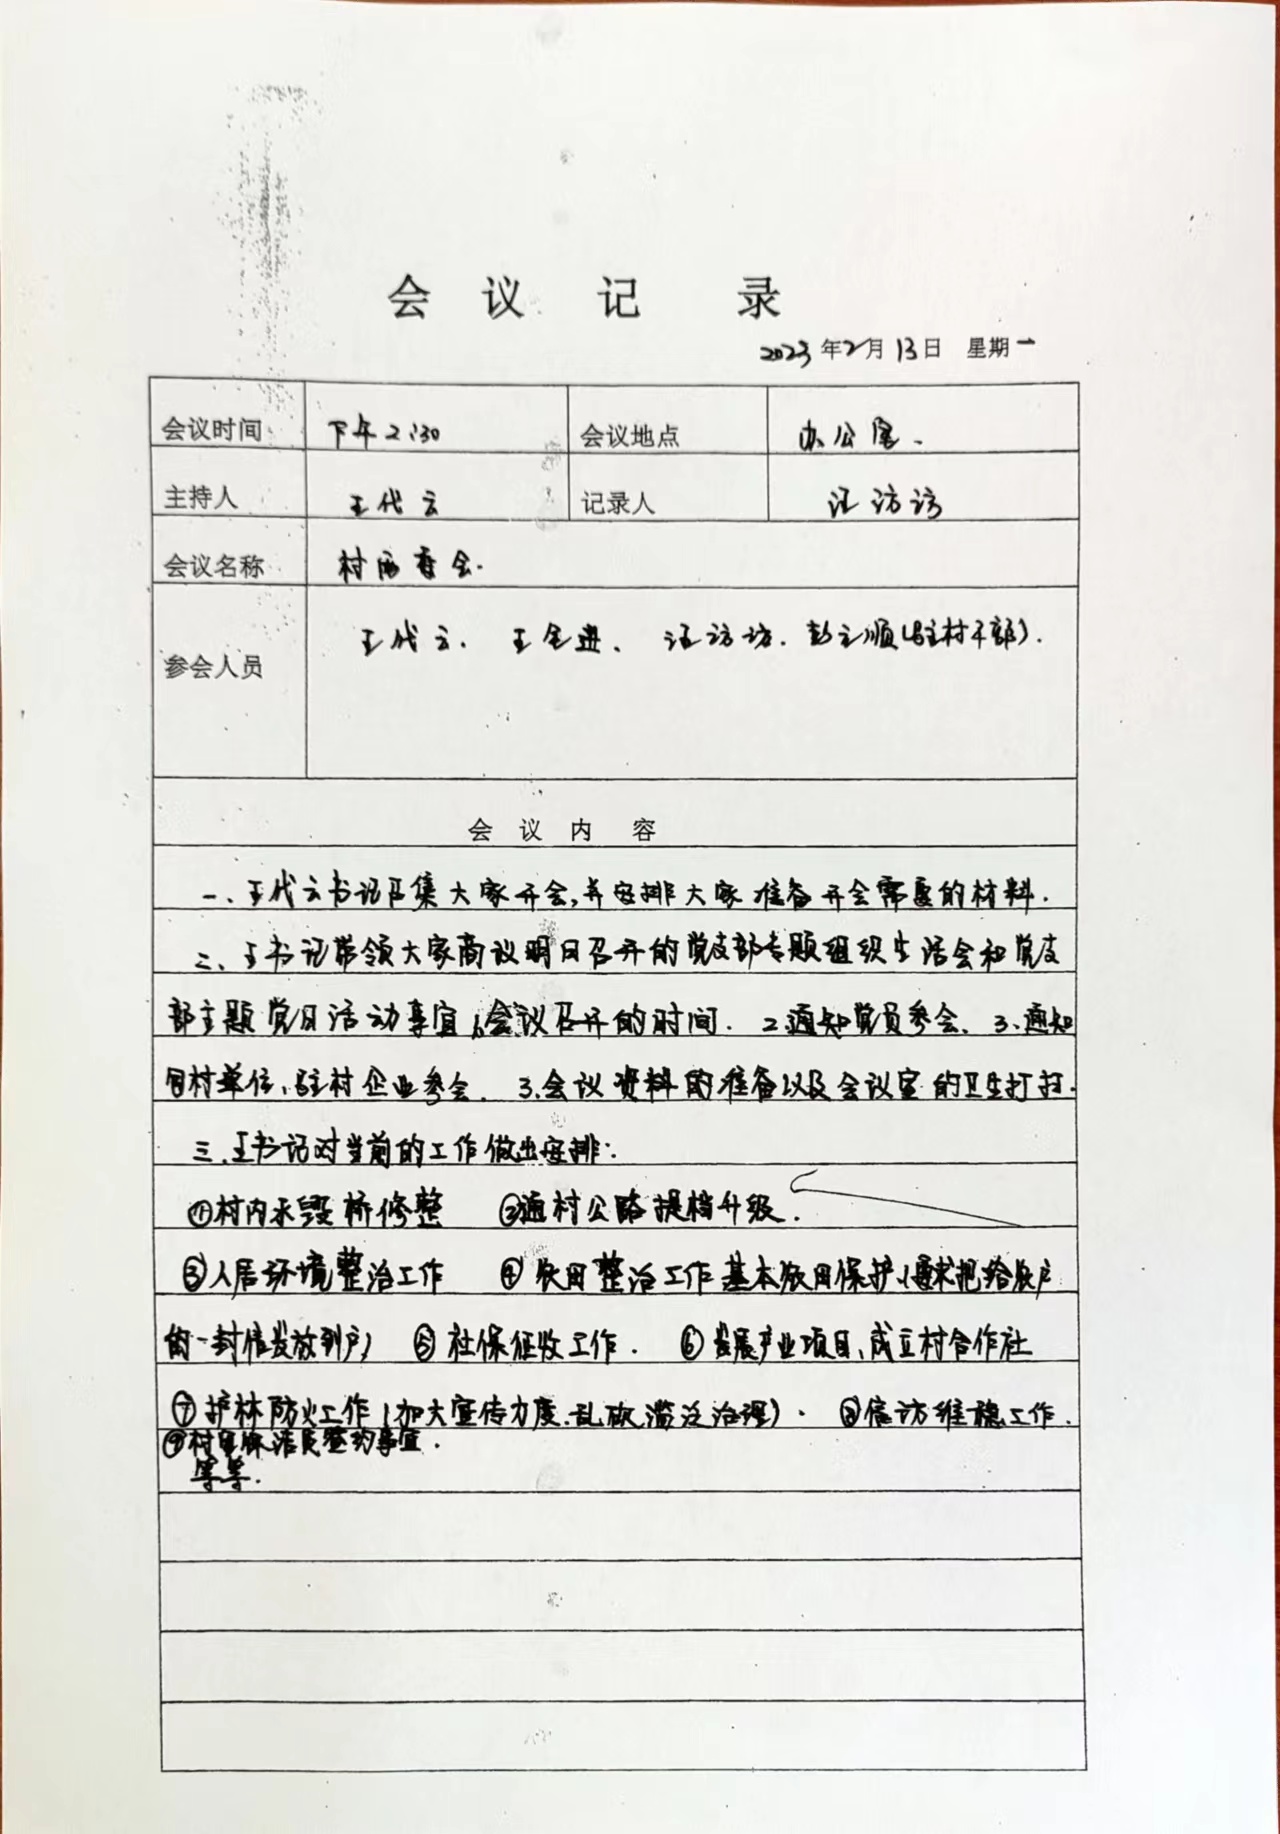 会 议 记 录
2023年2月13日 星期一
会议时间 下午2:30 会议地点 办公室.
主持人 王代云 记录人 汪访访
会议名称 村两委会.
参会人员 王代云. 王金进、 汪访访. 彭立顺(驻村干部).
会 议 内 容
一、王代云书记召集大家开会,并安排大家准备开会需要的材料.
二、王书记带领大家商议明日召开的党支部专题组织生活会和党支
部主题党日活动事宜 1、会议召开的时间. 2.通知党员参会、 3、通知
包村单位、驻村企业参会. 3.会议资料的准备以及会议室的卫生打扫.
三、王书记对当前的工作做出安排:
①村内水毁桥修整 ②通村公路提档升级.
③人居环境整治工作 ④农田整治工作 基本农田保护(要求把给农户
的一封信发放到户) ⑤社保征收工作. ⑥发展产业项目、成立村合作社
⑦护林防火工作(加大宣传力度、乱砍滥泛治理). ⑧信访维稳工作.
⑨村里保洁员签约事宜.
等等.